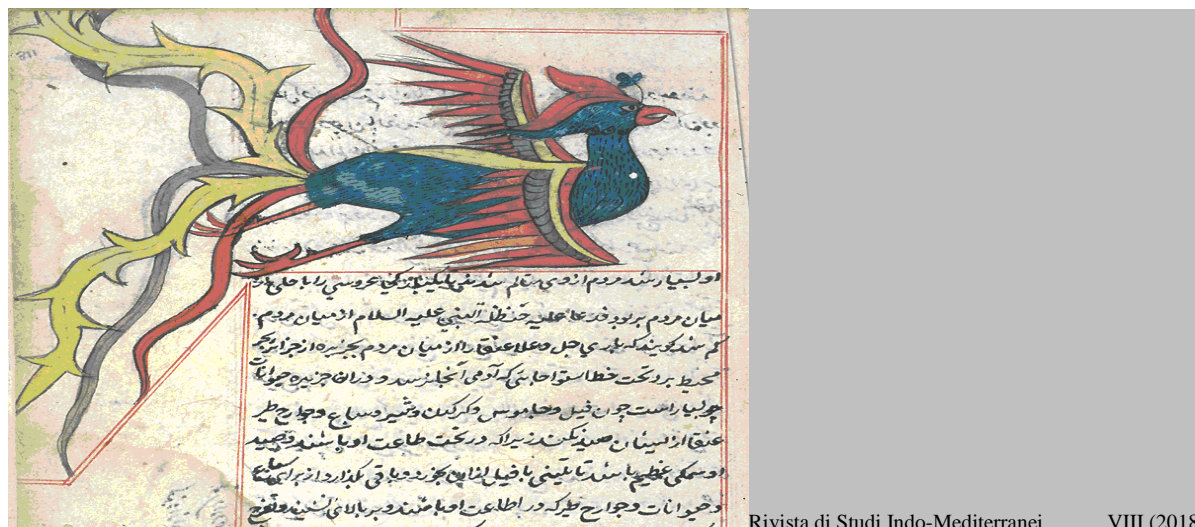 او بسیار شد مردم از وی متالم شدند تا یکی عروسی را با حلی از
میان مردم بربود فدعا علیه حنظلة النبی علیه السلام از میان مردم
کم شد کویند که باری جل و علا عنقا را از میان مردم بجزیره از جزایر بحر
محیط برد تحت خط استوا جایی که آدمی آنجا نرسد و دران جزیره حیوانات
بسیار است چون فیل و جاموس و کرکدن و شیر و سباع و جوارح طیر
عنقا از ایشان صید نکند زیرا که در تحت طاعت او باشند و صید
او سمکی عظیم باشد یا تنینی یا فیل ازان بخورد و باقی بگذارد از برای سباع
و حیوانات و جوارح طیر که در اطاعت او باشند و بر بالای
Rivista di Studi Indo-Mediterranei VIII (2018